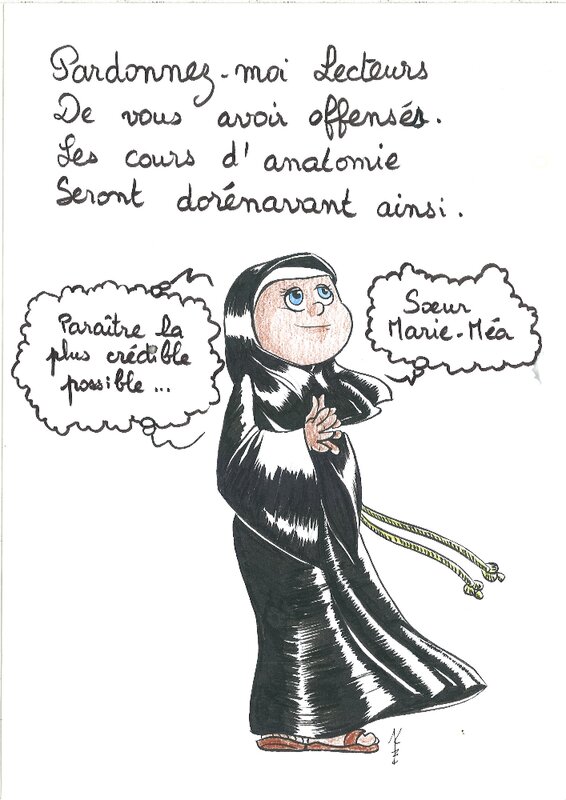 Pardonnez-moi Lecteurs
De vous avoir offensés.
Les cours d'anatomie
Seront dorénavant ainsi.
Paraître la
plus crédible
possible...
Sœur
Marie-Méa